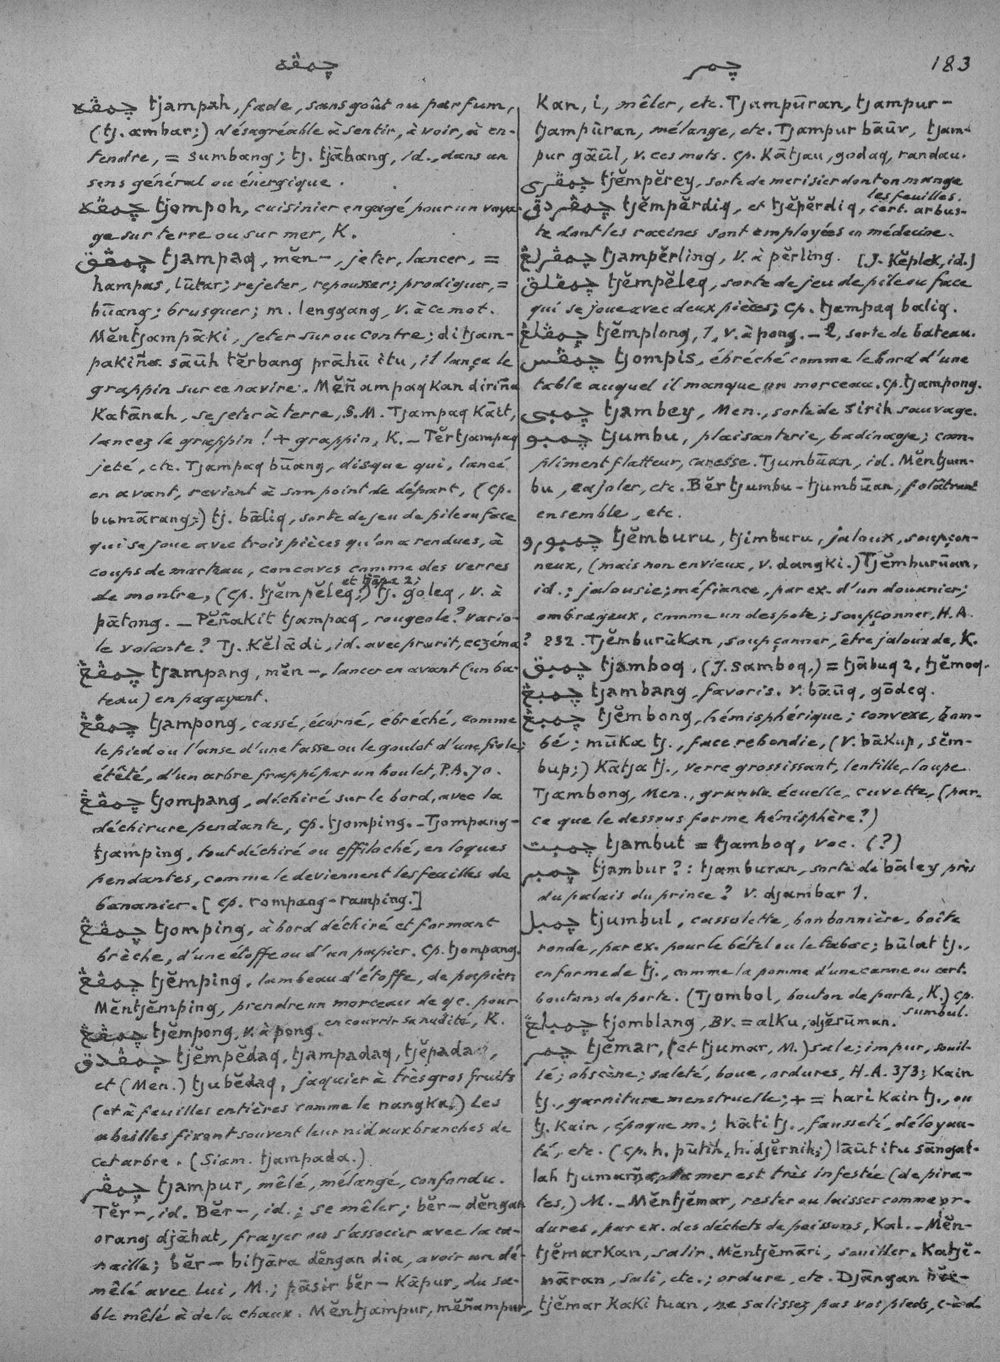 چمڤه
چمر
183
چمڤه tjampah, fade, sans goût ou parfum,
(tj. ambar;) désagréable à sentir, à voir, à en-
tendre, = sumbang; tj. tjăbang, id., dans un
sens général ou énergique.
چمڤه tjompoh, cuisinier engagé pour un voya-
ge sur terre ou sur mer, K.
چمڤق tjampaq, mĕn-, jeter, lancer, =
hampas, lūtar; rejeter, repousser; prodiguer, =
būang; brusquer; m. lenggang, v. à ce mot.
Mĕntjampāki, jeter sur ou contre; ditjam-
pakiña sāūh tĕrbang prāhū itu, il lança le
grappin sur ce navire. Mĕñampaqkan diriña
katānah, se jeter à terre, S.M. Tjampaq kāit,
lancez le grappin! + grappin, K. – Tĕrtjampaq
jeté, etc. Tjampaq būang, disque qui, lancé
en avant, revient à son point de départ, (cp.
bumārang;) tj. bāliq, sorte de jeu de pile ou face
qui se joue avec trois pièces qu'on a rendues, à
coups de marteau, concaves comme des verres
de montre, (cp. tjĕmpĕleq;) tj. goleq, v. à
pātong. – Pĕñakit tjampaq, rougeole? vario-
le volante? Tj. Kĕlādi, id. avec prurit, eczéma
چمڤڠ tjampang, mĕn-, lancer en avant (un ba-
teau) en pagayant.
چمڤڠ tjampong, cassé, écorné, ébréché, comme
le pied ou l'anse d'une tasse ou le goulot d'une fiole;
étêté, d'un arbre frappé par un boulet, P.A. 70.
چمڤڠ tjompang, déchiré sur le bord, avec la
déchirure pendante, cp. tjomping. – Tjompang-
tjamping, tout déchiré ou effiloché, en loques
pendantes, comme le deviennent les feuilles de
bananier. [cp. rompang-ramping.]
چمڤڠ tjomping, à bord déchiré et formant
brèche, d'une étoffe ou d'un papier. Cp. tjompang.
چمڤڠ tjĕmping, lambeau d'étoffe, de papier
Mĕntjĕmping, prendre un morceau de qc. pour
en couvrir sa nudité, K.
چمڤڠ tjĕmpong, v. à pong.
چمڤدق tjĕmpĕdaq, tjampadaq, tjĕpadaq,
et (Men.) tjubĕdaq, jaquier à très gros fruits
(et à feuilles entières comme le nangka.) Les
abeilles fixent souvent leur nid aux branches de
cet arbre. (Siam. tjampada.)
چمڤر tjampur, mêlé, mélangé, confondu.
Tĕr-, id. Bĕr-, id.; se mêler; bĕr-dĕngan
orang djāhat, frayer ou s'associer avec la ca-
naille; bĕr-bitjāra dĕngan dia, avoir un dé-
mêlé avec lui, M.; pāsir bĕr-kāpur, du sa-
ble mêlé à de la chaux. Mĕntjampur, mĕñampur,
kan, i, mêler, etc. Tjampūran, tjampur-
tjampūran, mélange, etc. Tjampur bāūr, tjam-
pur gāūl, v. ces mots. cp. kātjau, godaq, randau.
چمڤري tjĕmpĕrey, sorte de merisier dont on mange
les feuilles.
چمڤردق tjĕmpĕrdiq, et tjĕpĕrdiq, cert. arbus-
te dont les racines sont employées en médecine.
چمڤرلڠ tjampĕrling, v. à pĕrling. [J. kĕplek, id.]
چمڤلق tjĕmpĕleq, sorte de jeu de pile ou face
qui se joue avec deux pièces; cp. tjampaq baliq.
چمڤلڠ tjĕmplong, 1, v. à pong. – 2, sorte de bateau.
چمڤس tjompis, ébréché comme le bord d'une
table auquel il manque un morceau. cp. tjampong.
چمبي tjambey, Men., sorte de sirih sauvage.
چمبو tjumbu, plaisanterie, badinage; com-
pliment flatteur, caresse. Tjumbūan, id. Mĕntjum-
bu, cajoler, etc. Bĕrtjumbu-tjumbūan, folâtrant
ensemble, etc.
چمبورو tjĕmburu, tjimburu, jaloux, soupçon-
neux, (mais non envieux, v. dangki.) Tjĕmburūan,
id.; jalousie; méfiance, par ex. d'un douanier;
ombrageux, comme un despote; soupçonner, H.A.
? 232. Tjĕmburūkan, soupçonner, être jaloux de, K.
چمبق tjamboq, (J. samboq,) = tjābuq 2, tjĕmoq.
چمبڠ tjambang, favoris. v. bāūq, gōdeq.
چمبڠ tjĕmbong, hémisphérique; convexe, bom-
bé; mūka tj., face rebondie, (v. bākup, sĕm-
bup;) kātja tj., verre grossissant, lentille, loupe.
Tjambong, Men., grande écuelle, cuvette, (par-
ce que le dessous forme hémisphère?)
چمبت tjambut = tjamboq, voc. (?)
چمبر tjambur?: tjamburan, sorte de bāley près
du palais du prince? v. djambar 1.
چمبل tjumbul, cassolette, bonbonnière, boîte
ronde, par ex. pour le bétel ou le tabac; būlat tj.,
en forme de tj., comme la pomme d'une canne ou cert.
boutons de porte. (Tjombol, bouton de porte, K.) cp.
sumbul.
چمبلڠ tjomblang, Bv. = alku, djĕrūman.
چمر tjĕmar, (et tjumar, M.) sale; impur, souil-
lé; obscène; saleté, boue, ordures, H.A. 373; kain
tj., garniture menstruelle; + = hari kain tj., ou
tj. kain, époque m.; hāti tj., fausseté, déloyau-
té, etc. (cp. h. pūtih, h. djĕrnih;) lāūt itu sāngat-
lah tjumarña, la mer est très infestée (de pira-
tes,) M. – Mĕntjĕmar, rester ou laisser comme or-
dures, par ex. des déchets de poissons, Kal. – Mĕn-
tjĕmarkan, salir. Mĕntjĕmāri, souiller. Katjĕ-
māran, sali, etc.; ordure, etc. Djāngan bĕr-
tjĕmar kaki tuan, ne salissez pas vos pieds, c-à-d.